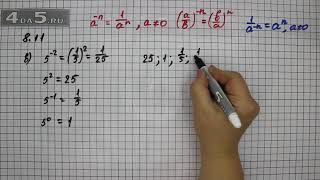 4DA5.RU
a⁻ⁿ = 1/aⁿ, a≠0 (a/b)⁻ⁿ = (b/a)ⁿ 1/a⁻ⁿ = aⁿ, a≠0
8.11
б) 5⁻² = (1/5)² = 1/25 25; 1; 1/5; 1
5² = 25
5⁻¹ = 1/5
5⁰ = 1